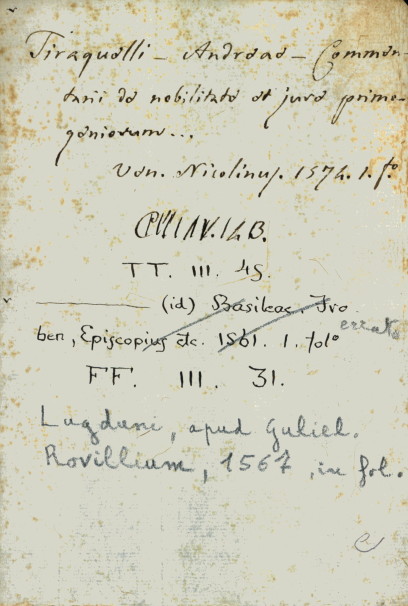 Tiraquelli - Andreae - Commen-
tarii de nobilitate et jure primo-
geniorum...
Ven. Nicolinus. 1574. 1. fo.
TT. III. 45.
(id) Basileae. Fro
ben, Episcopius etc. 1561. 1. folo
errato
FF. III. 31.
Lugduni, apud Guliel.
Rovillium, 1567, in fol.